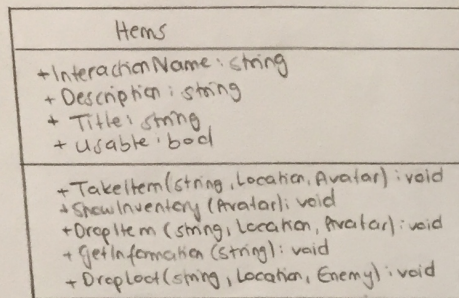 Items
+InteractionName: string
+ Description: string
+ Title: string
+ usable: bool
+TakeItem(string, Location, Avatar): void
+ShowInventory (Avatar): void
+DropItem (string, Location, Avatar): void
+ getInformation (string): void
+DropLoot(string, Location, Enemy): void